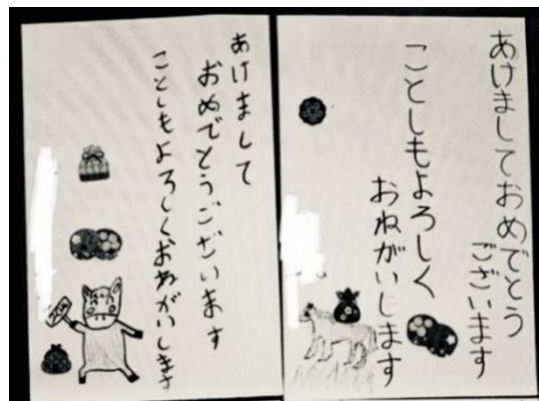 あけましておめでとう
ございます
ことしもよろしく
おねがいします
あけまして
おめでとうございます
ことしもよろしくおねがいします